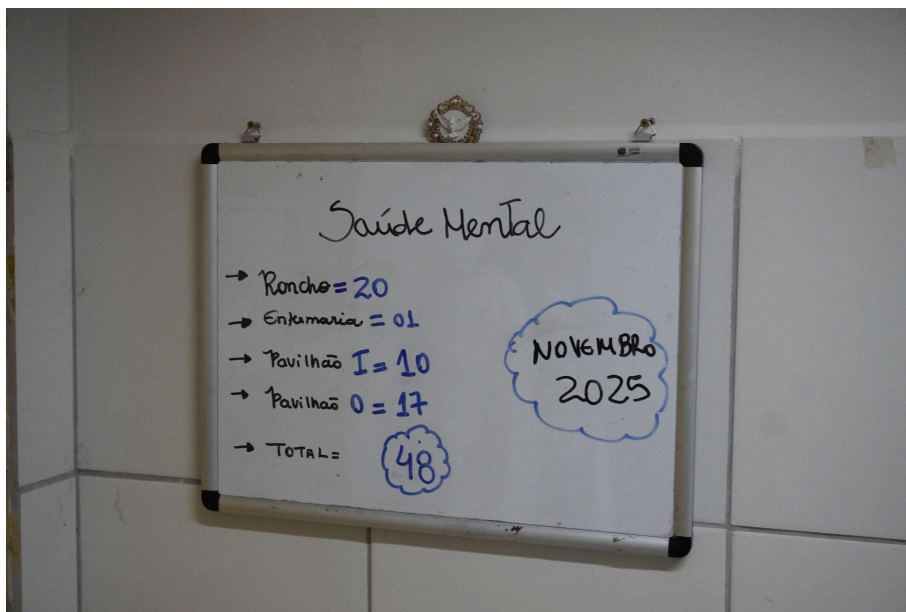 Saúde Mental
→ Rancho = 20
→ Enfermaria = 01
→ Pavilhão I = 10
→ Pavilhão O = 17
→ TOTAL = 48
NOVEMBRO
2025